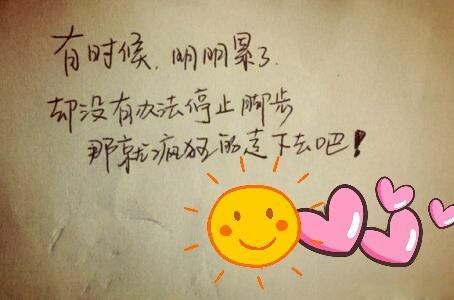 有时候,明明累了
却没有办法停止脚步
那就疯狂的走下去吧!